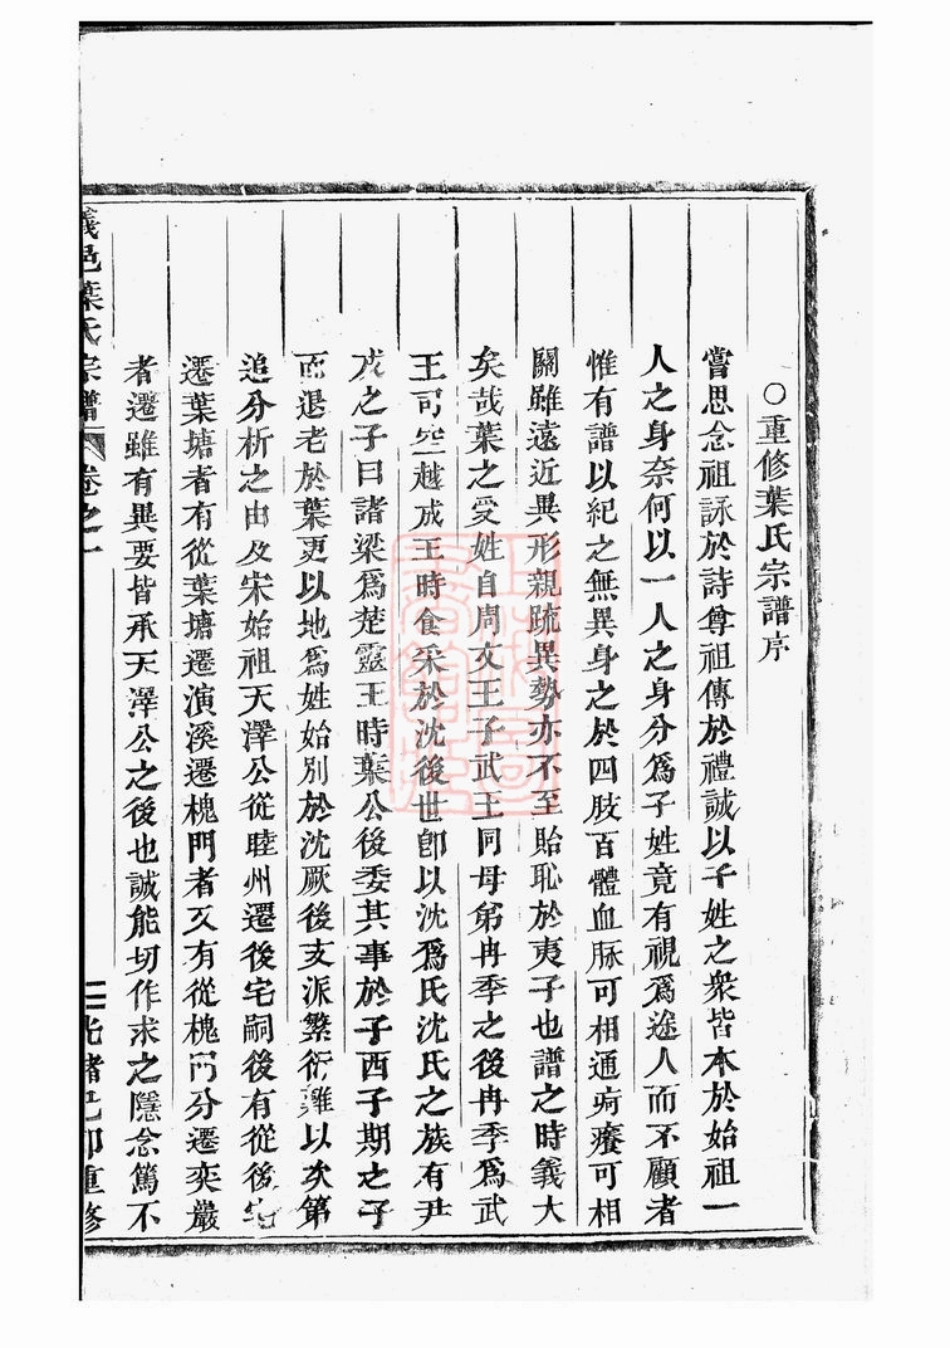 ○重修葉氏宗譜序
嘗思念祖詠於詩尊祖傳於禮誠以千姓之衆皆本於始祖一
人之身奈何以一人之身分爲子姓竟有視爲途人而不顧者
惟有譜以紀之無異身之於四肢百體血脉可相通痾癢可相
關雖遠近異形親疏異勢亦不至貽恥於夷子也譜之時義大
矣哉葉之受姓自周文王子武王同母弟冉季之後冉季爲武
王司空越成王時食采於沈後世卽以沈爲氏沈氏之族有尹
戍之子曰諸梁爲楚靈王時葉公後委其事於子西子期之子
而退老於葉更以地爲姓始別於沈厥後支派繁衍難以次第
追分析之由及宋始祖天澤公從睦州遷後宅嗣後有從後宅
遷葉塘者有從葉塘遷演溪遷槐門者又有從槐門分遷奕巖
者遷雖有異要皆承天澤公之後也誠能切作求之隱念篤不
義邑葉氏宗譜 卷之一 二 光緒己卯重修